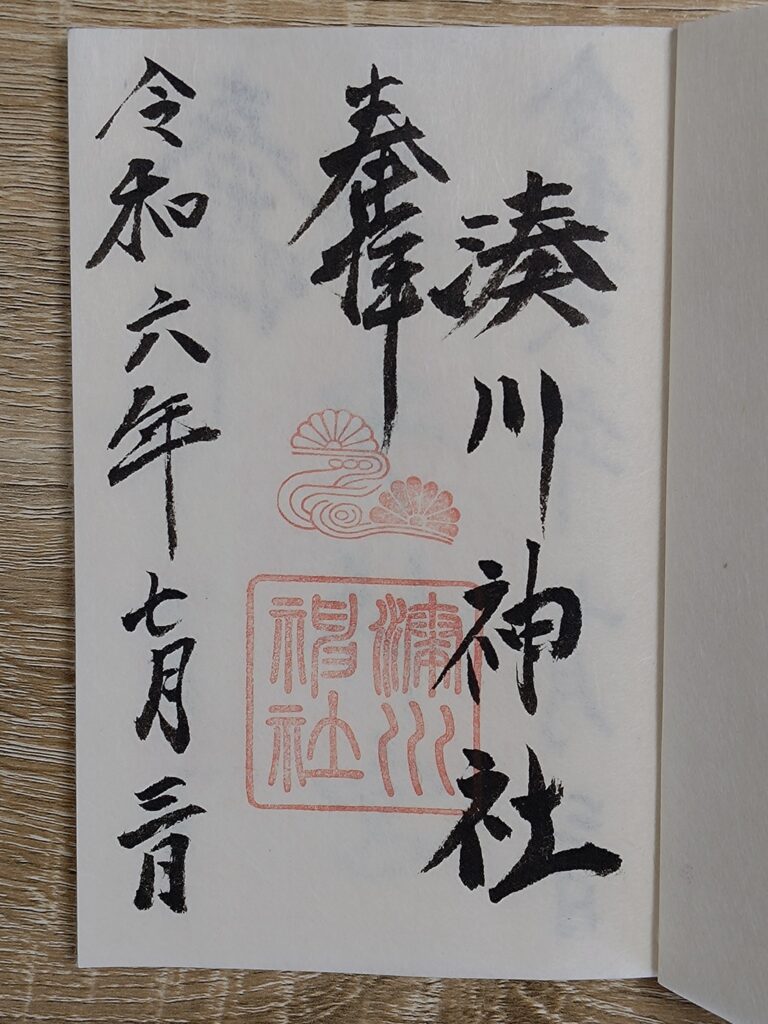 湊川神社
奉拝
湊川
神社
令和六年七月三日